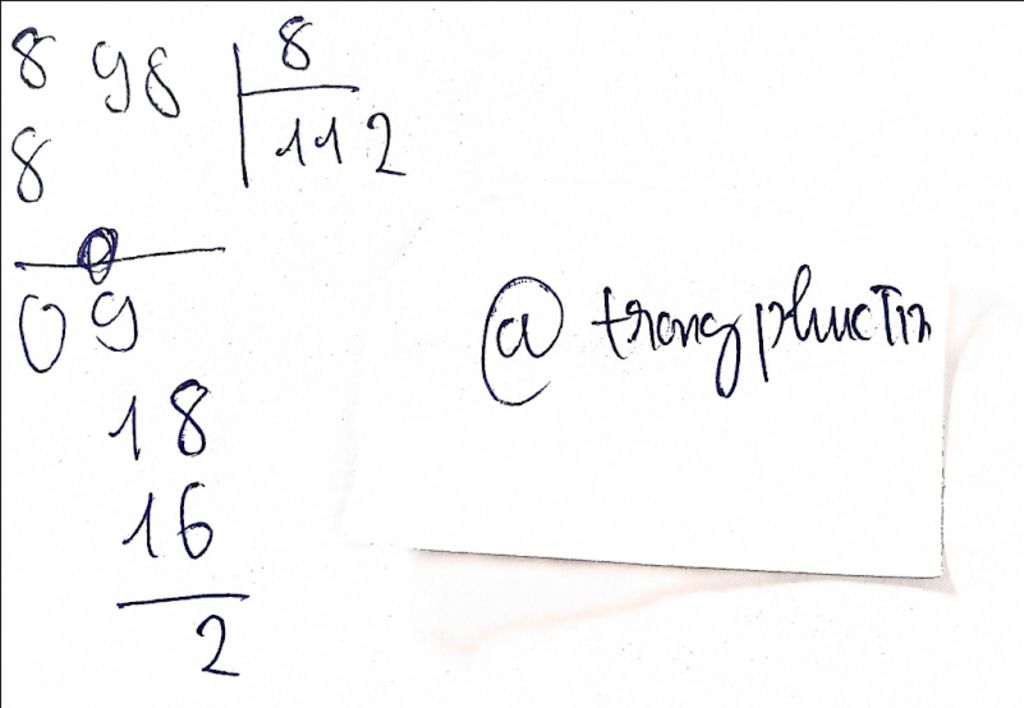 898 8
8 112
09
@trongphuctin
18
16
2